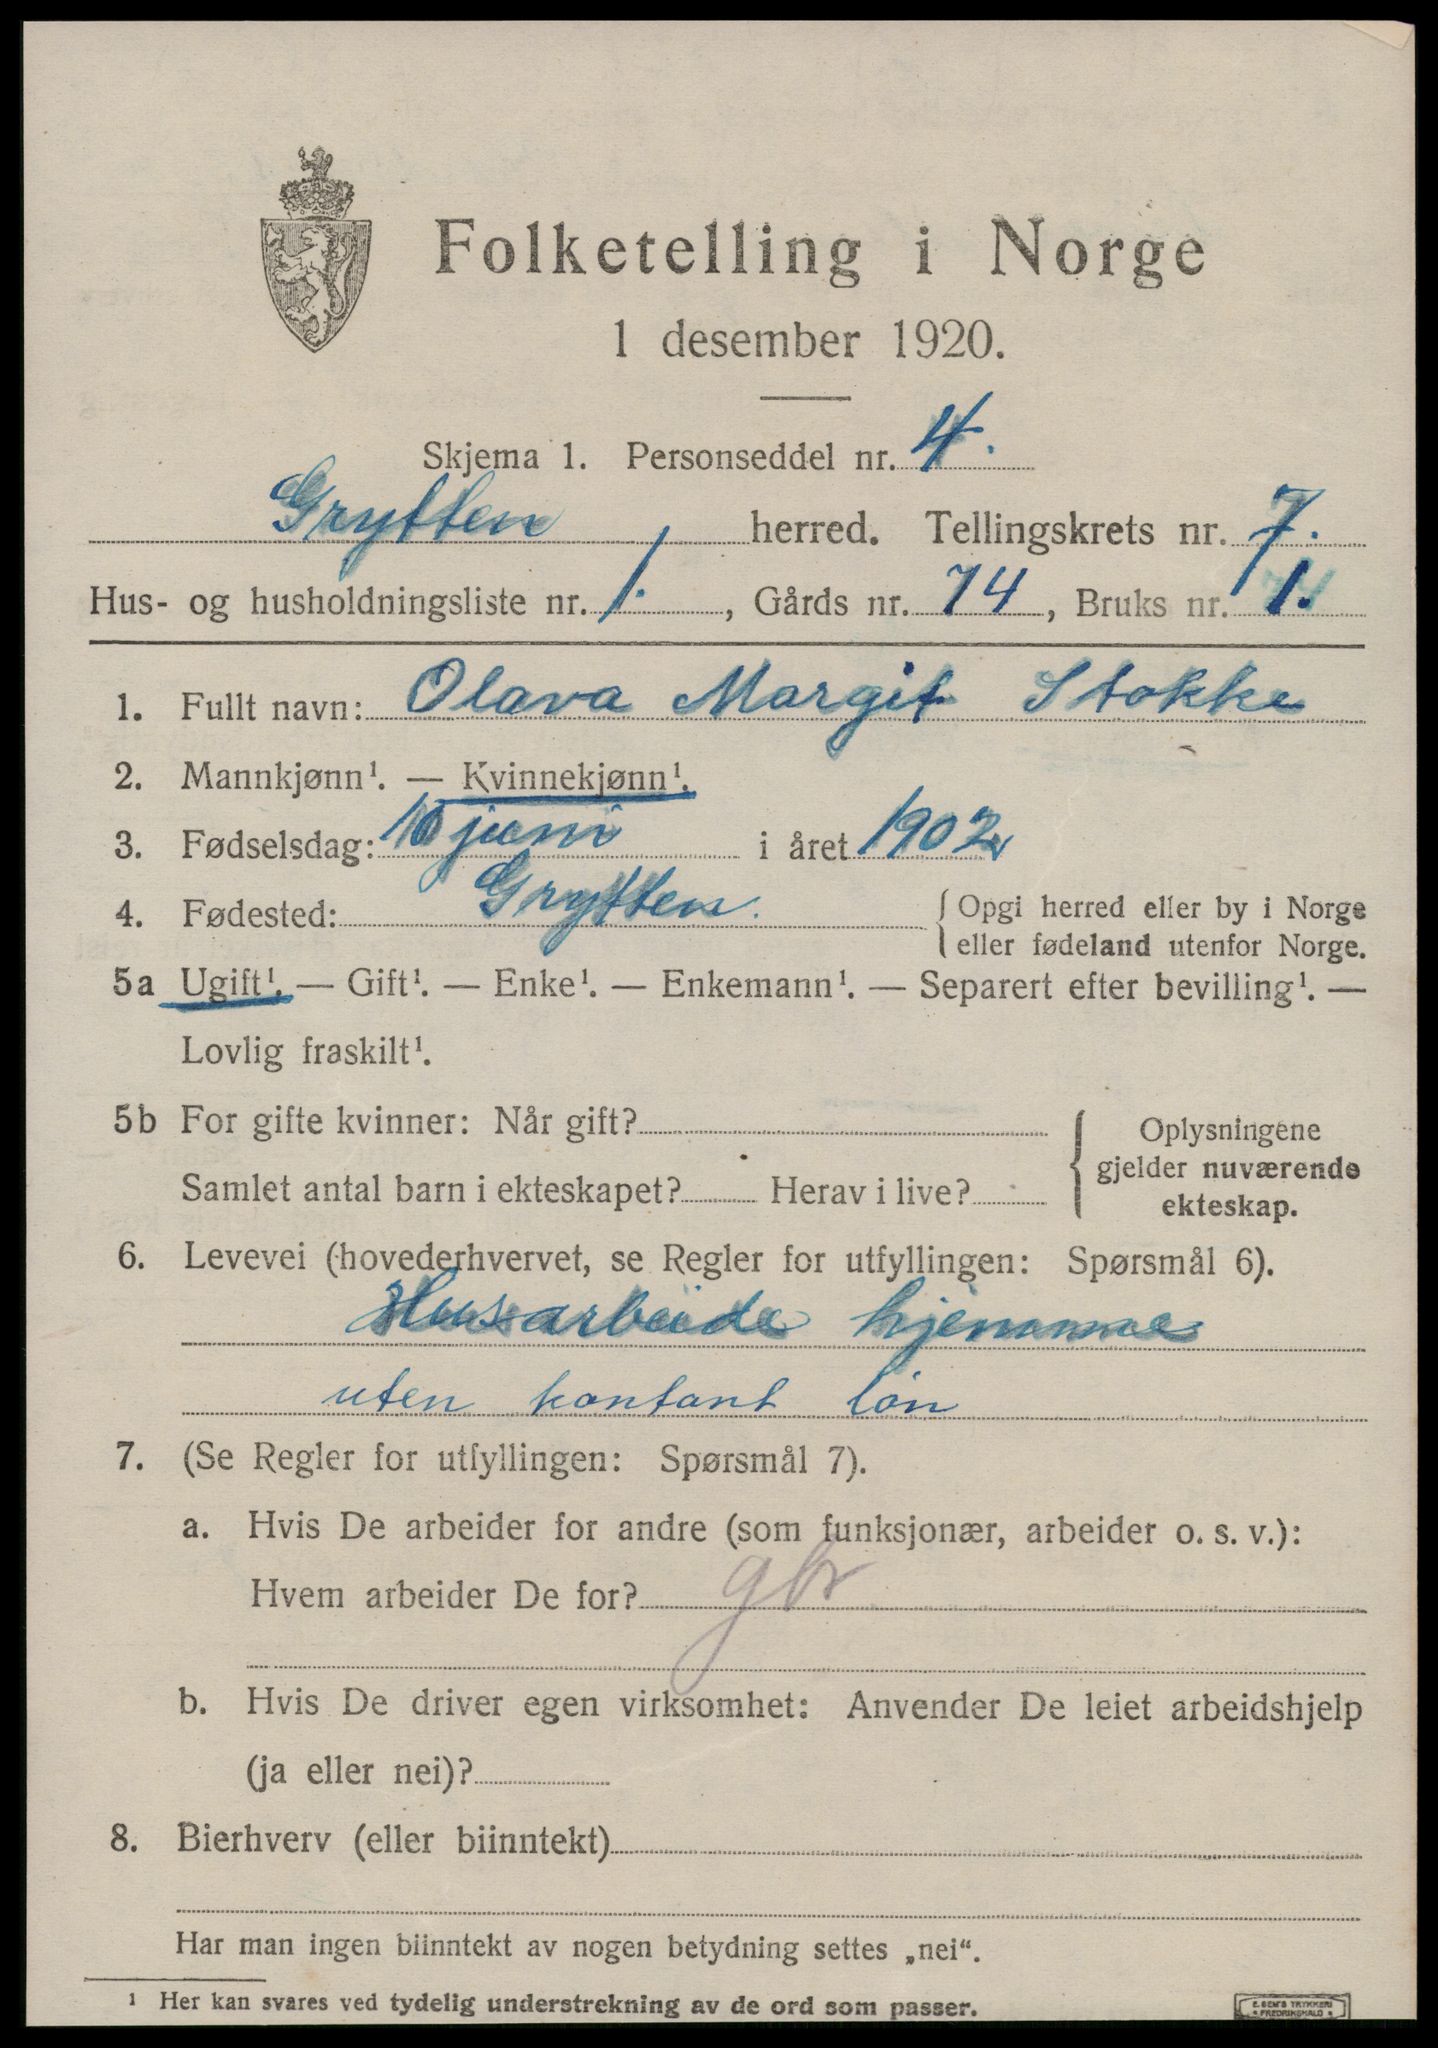 Folketelling i Norge
1 desember 1920.
Skjema 1. Personseddel nr. 4.
Grytten herred. Tellingskrets nr. 7.
Hus- og husholdningsliste nr. 1., Gårds nr. 74, Bruks nr. 1.
1. Fullt navn: Olava Margit Stokke
2. Mannkjønn¹. — Kvinnekjønn¹.
3. Fødselsdag: juni i året 1902
4. Fødested: Grytten. { Opgi herred eller by i Norge
eller fødeland utenfor Norge.
5a Ugift¹. — Gift¹. — Enke¹. — Enkemann¹. — Separert efter bevilling¹. —
Lovlig fraskilt¹.
5b For gifte kvinner: Når gift?
Samlet antal barn i ekteskapet? Herav i live?
Oplysningene
gjelder nuværende
ekteskap.
6. Levevei (hovederhvervet, se Regler for utfyllingen: Spørsmål 6).
Husarbeide hjemme
uten kontant løn
7. (Se Regler for utfyllingen: Spørsmål 7).
a. Hvis De arbeider for andre (som funksjonær, arbeider o. s. v.):
Hvem arbeider De for?
b. Hvis De driver egen virksomhet: Anvender De leiet arbeidshjelp
(ja eller nei)?
8. Bierhverv (eller biinntekt)
Har man ingen biinntekt av nogen betydning settes „nei“.
¹ Her kan svares ved tydelig understrekning av de ord som passer.
E. SEM'S TRYKKERI
FREDRIKSHALD